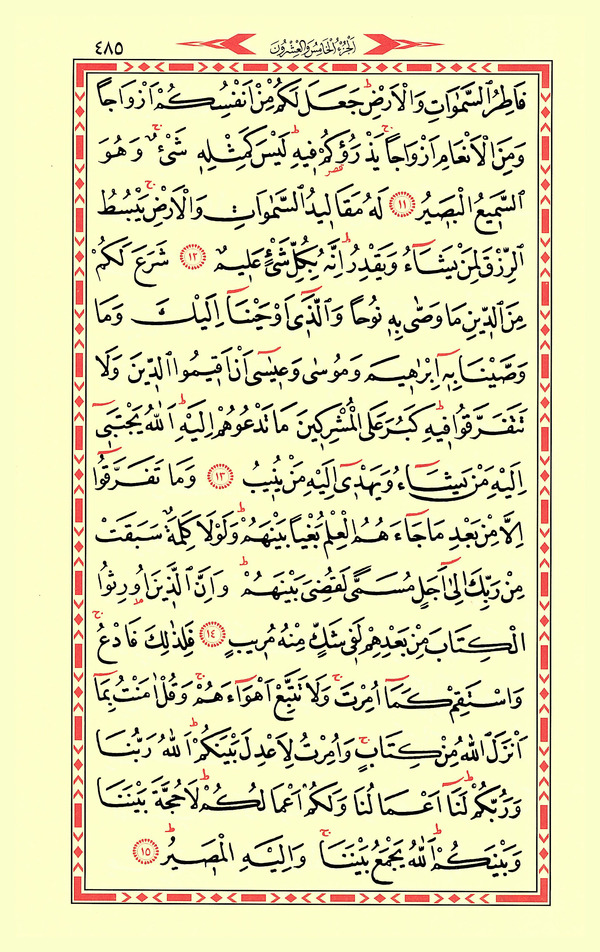 ٤٨٥
اَلْجُزْءُ الْخَامِسُ وَالْعِشْرُونَ
فَاطِرُ السَّمٰوَاتِ وَالْاَرْضِۜ جَعَلَ لَكُمْ مِنْ اَنْفُسِكُمْ اَزْوَاجًا
وَمِنَ الْاَنْعَامِ اَزْوَاجًاۚ يَذْرَؤُ۬كُمْ فٖيهِۜ لَيْسَ كَمِثْلِهٖ شَيْءٌۚ وَهُوَ
السَّمٖيعُ الْبَصٖيرُ ﴿١١﴾ لَهُ مَقَالٖيدُ السَّمٰوَاتِ وَالْاَرْضِۚ يَبْسُطُ
الرِّزْقَ لِمَنْ يَشَٓاءُ وَيَقْدِرُۜ اِنَّهُ بِكُلِّ شَيْءٍ عَلٖيمٌ ﴿١٢﴾ شَرَعَ لَكُمْ
مِنَ الدّٖينِ مَا وَصّٰى بِهٖ نُوحًا وَالَّذٖٓي اَوْحَيْنَٓا اِلَيْكَ وَمَا
وَصَّيْنَا بِهٖٓ اِبْرٰهٖيمَ وَمُوسٰى وَعٖيسٰٓى اَنْ اَقٖيمُوا الدّٖينَ وَلَا
تَتَفَرَّقُوا فٖيهِۜ كَبُرَ عَلَى الْمُشْرِكٖينَ مَا تَدْعُوهُمْ اِلَيْهِۜ اَللّٰهُ يَجْتَبٖٓي
اِلَيْهِ مَنْ يَشَٓاءُ وَيَهْدٖٓي اِلَيْهِ مَنْ يُنٖيبُ ﴿١٣﴾ وَمَا تَفَرَّقُٓوا
اِلَّا مِنْ بَعْدِ مَا جَٓاءَهُمُ الْعِلْمُ بَغْيًا بَيْنَهُمْۜ وَلَوْلَا كَلِمَةٌ سَبَقَتْ
مِنْ رَبِّكَ اِلٰٓى اَجَلٍ مُسَمًّى لَقُضِيَ بَيْنَهُمْۜ وَاِنَّ الَّذٖينَ اُو۫رِثُوا
الْكِتَابَ مِنْ بَعْدِهِمْ لَفٖي شَكٍّ مِنْهُ مُرٖيبٍ ﴿١٤﴾ فَلِذٰلِكَ فَادْعُۚ
وَاسْتَقِمْ كَمَٓا اُمِرْتَۚ وَلَا تَتَّبِعْ اَهْوَٓاءَهُمْۚ وَقُلْ اٰمَنْتُ بِمَٓا
اَنْزَلَ اللّٰهُ مِنْ كِتَابٍۚ وَاُمِرْتُ لِاَعْدِلَ بَيْنَكُمْۜ اَللّٰهُ رَبُّنَا
وَرَبُّكُمْۜ لَنَٓا اَعْمَالُنَا وَلَكُمْ اَعْمَالُكُمْۜ لَا حُجَّةَ بَيْنَنَا
وَبَيْنَكُمْۜ اَللّٰهُ يَجْمَعُ بَيْنَنَاۚ وَاِلَيْهِ الْمَصٖيرُۜ ﴿١٥﴾